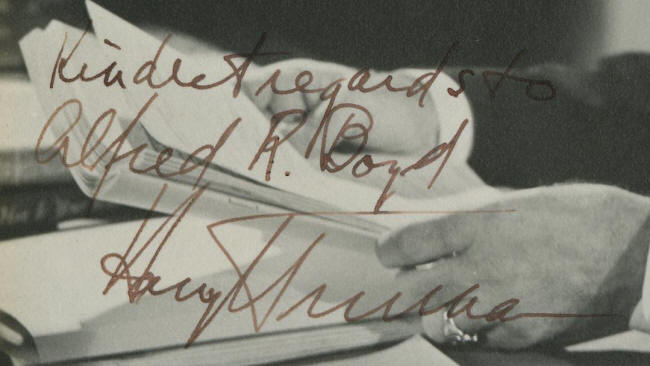 Kindest regards to
Alfred R. Boyd
Harry Truman